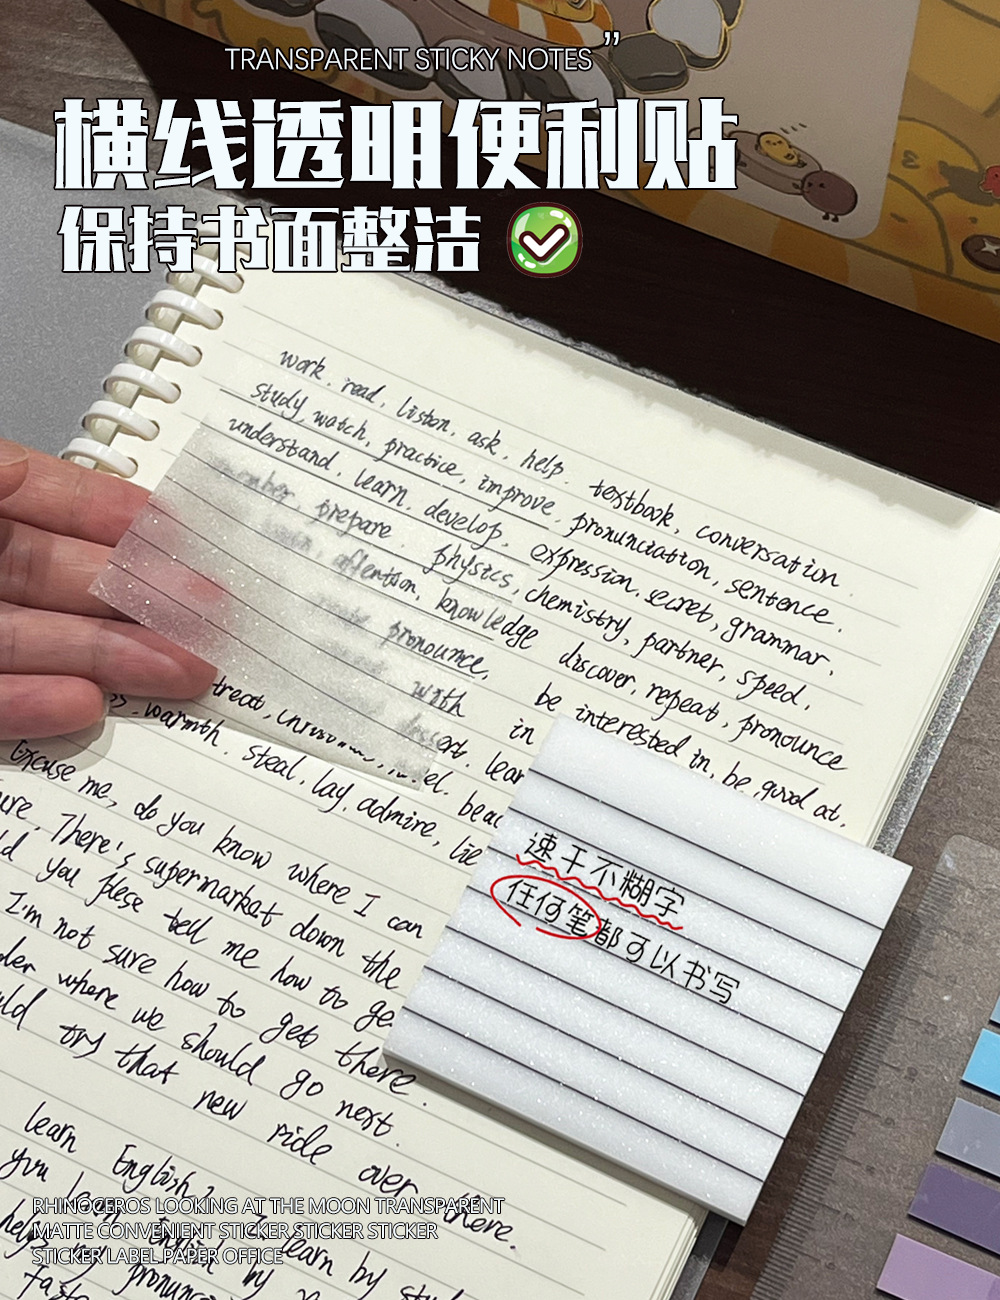 TRANSPARENT STICKY NOTES ”
横线透明便利贴
保持书面整洁
work. read, liston, ask, help. textbook, conversation.
study, watch, practice, improve. pronunciation, sentence.
understand, learn, develop, expression, secret, grammar,
prepare. physics, chemistry, partner, speed,
affention, knowledge discover, repeat, pronounce
pronounce, be interested in, be good at,
with in
treat, lear
warmth. steal, lay, admire, lie
速干不糊字
任何笔都可以书写
Excuse me, do you know where I can
There's supermarket down the
you plese tell me how to ge
I'm not sure how to get there
where we should go next.
try that new ride over there.
learn English?
you learn English by I learn by
RHINOCEROS LOOKING AT THE MOON TRANSPARENT
MATTE CONVENIENT STICKER STICKER STICKER
STICKER LABEL PAPER OFFICE